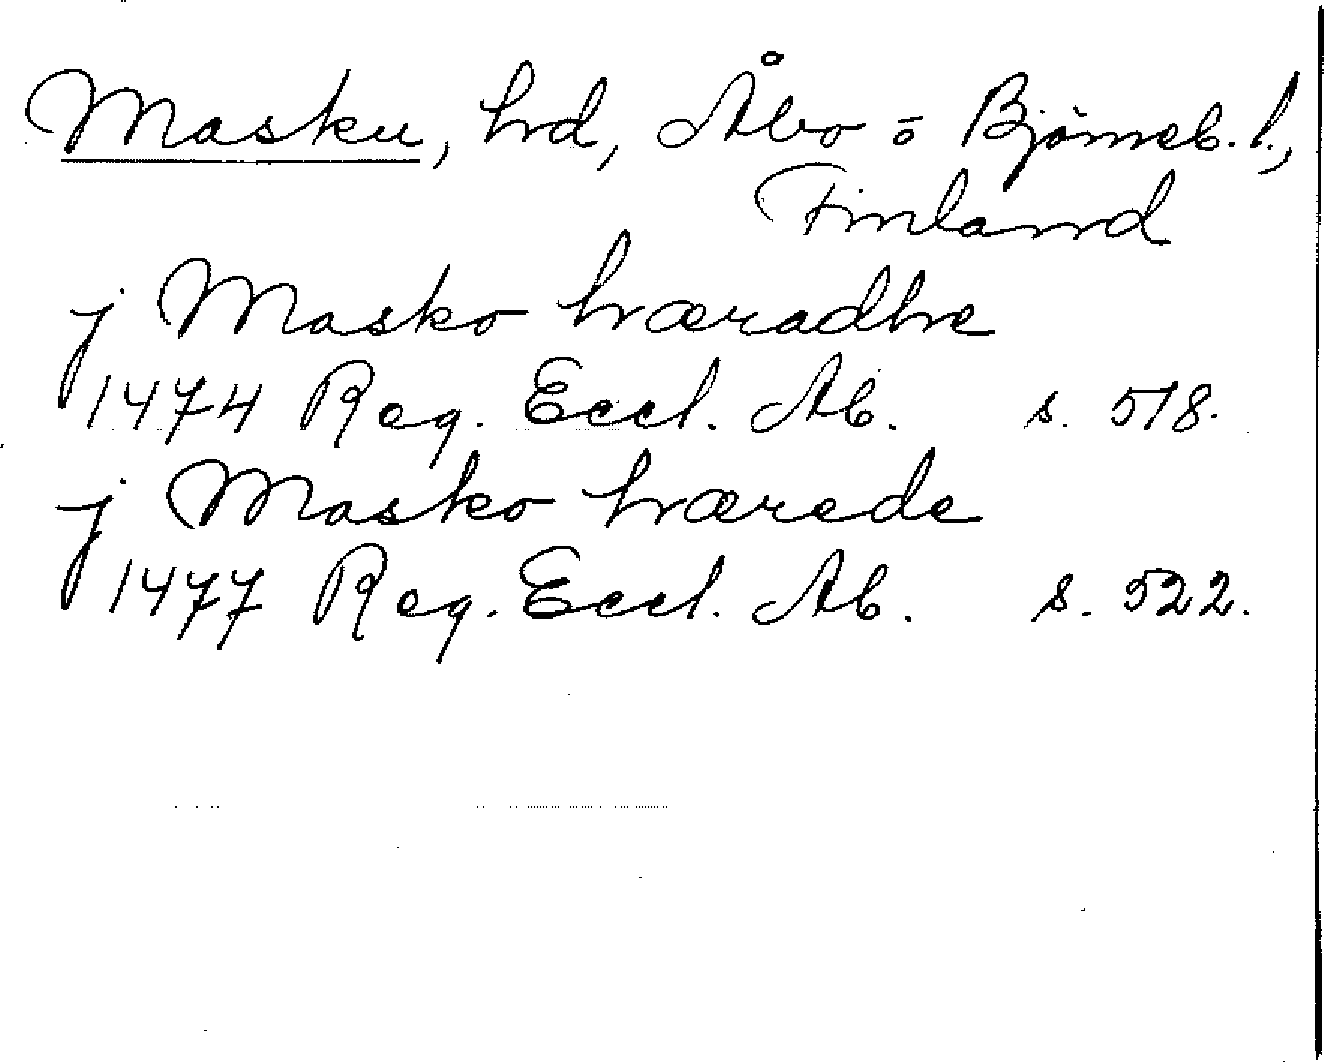 Masku, hd, Åbo o Björneb. l.,
Finland
j Masko hæradhe
1474 Reg. Eccl. Ab. s. 518.
j Masko hærede
1477 Reg. Eccl. Ab. s. 522.